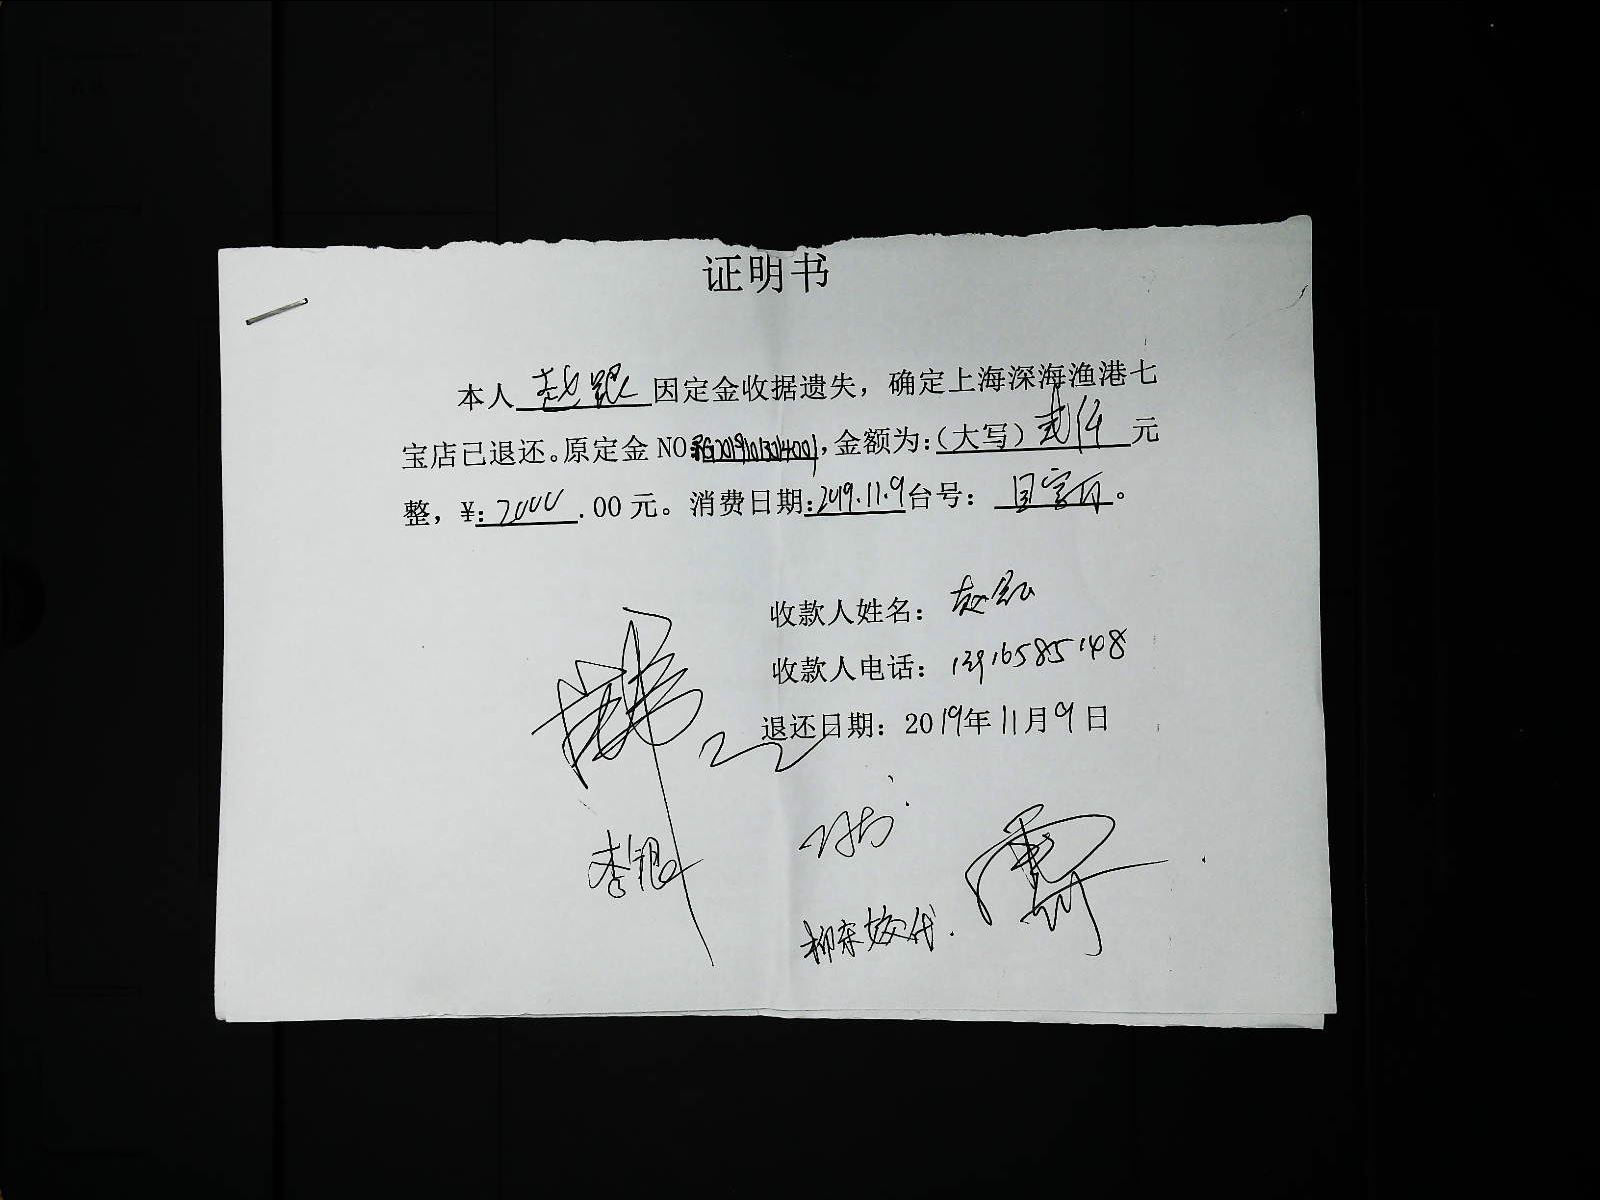 证明书
本人 赵 因定金收据遗失，确定上海深海渔港七
宝店已退还。原定金 NO ，金额为：（大写）贰仟 元
整，¥：2000 .00 元。消费日期：2019.11.9 台号： 。
收款人姓名：赵
收款人电话：13916585148
退还日期：2019年11月9日
李银
柳 代.